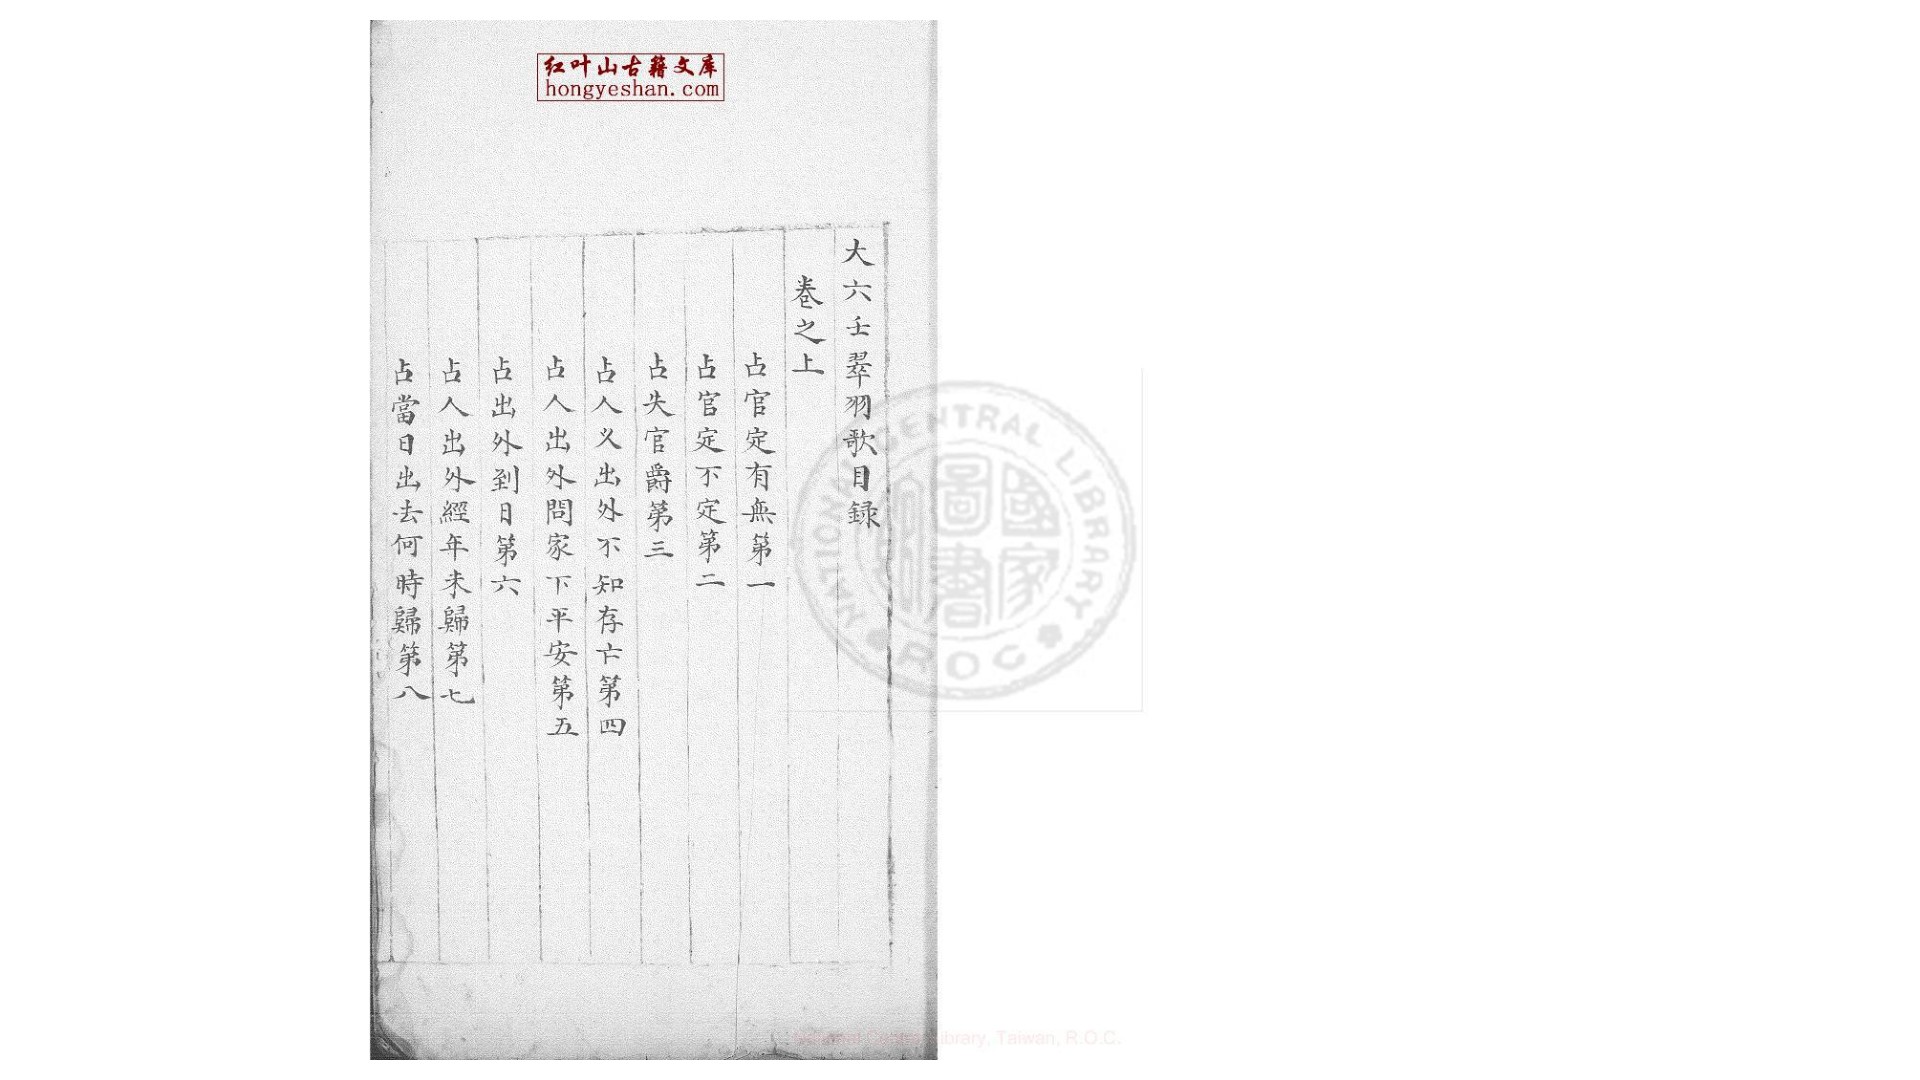 红叶山古籍文库
hongyeshan.com
大六壬翠羽歌目録
卷之上
占官定有無第一
占官定不定第二
占失官爵第三
占人乂出外不知存亡第四
占人出外問家下平安第五
占出外到日第六
占人出外經年未歸第七
占當日出去何時歸第八
NATIONAL CENTRAL LIBRARY
ROC
國家圖書館
National Central Library, Taiwan, R.O.C.